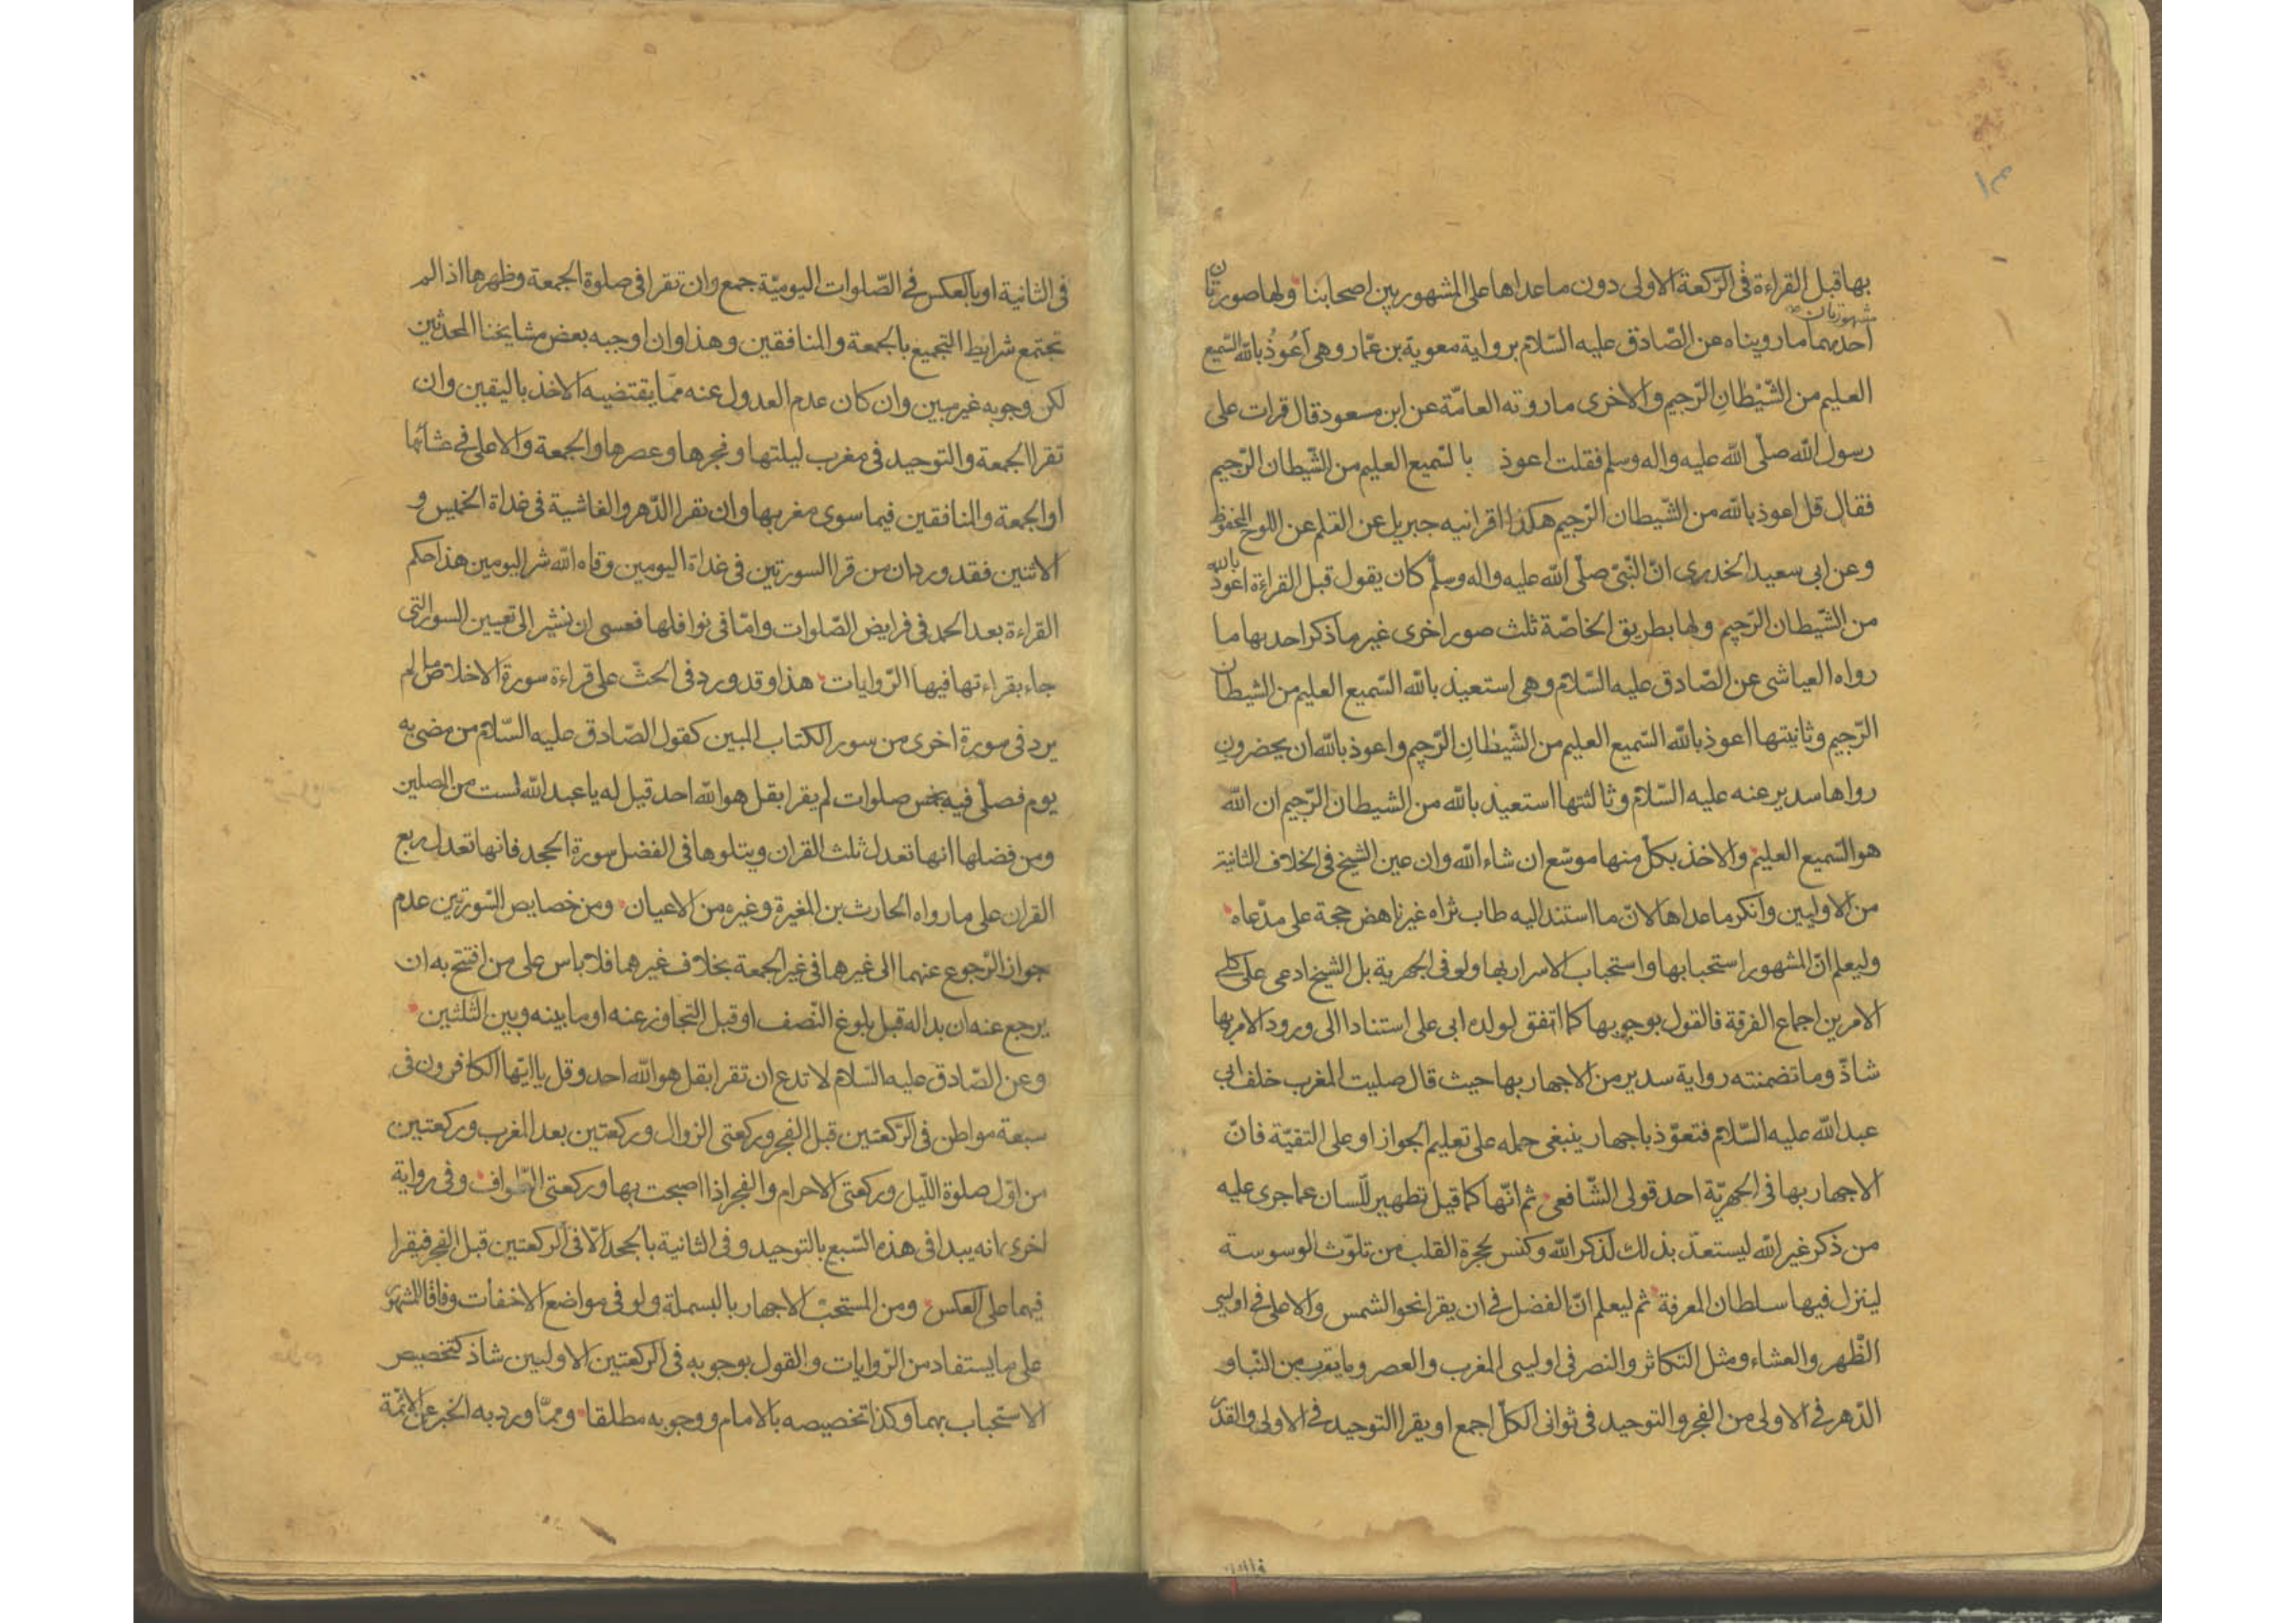 ١٤
بها قبل القراءة فى الرّكعة الاولى دون ما عداها على المشهور بين اصحابنا ولها صورتان
مشهورتان
احدیهما ما رویناه عن الصّادق علیه السّلام بروایة معویة بن عمّار وهى اَعُوذُ بِاللّه السّمیع
العلیم من الشّیْطانِ الرّجیم والاخرى ما روته العامّة عن ابن مسعود قال قرات على
رسول اللّه صلّى اللّه علیه واله وسلم فقلت اعوذ بالسّمیع العلیم من الشّیطان الرّجیم
فقال قل اعوذ باللّه من الشّیطان الرّجیم هكذا اقرانیه جبریل عن القلم عن اللوح المحفوظ
وعن ابى سعید الخدرى انّ النّبىّ صلّى اللّه علیه واله وسلّم كان یقول قبل القراءة اعوذ باللّه
من الشّیطان الرّجیم ولها بطریق الخاصّة ثلث صور اخرى غیر ما ذكر احدیها ما
رواه العیاشى عن الصّادق علیه السّلام وهى استعیذ باللّه السّمیع العلیم من الشیطان
الرّجیم وثانیتها اعوذ باللّه السّمیع العلیم من الشّیطانِ الرّجیم واعوذ باللّه ان یحضرونِ
رواها سدیر عنه علیه السّلام وثالثتها استعیذ باللّه من الشیطان الرّجیم ان اللّه
هو السّمیع العلیم والاخذ بكلّ منها موسّع ان شاء اللّه وان عین الشیخ فى الخلاف الثانیة
من الاولیین وانكر ما عداها لانّ ما استند الیه طاب ثراه غیر ناهض حجة على مدّعاه
ولیعلم انّ المشهور استحبابها واستحباب الاسرار بها ولو فى الجهریة بل الشیخ ادعى على كلى
الامرین اجماع الفرقة فالقول بوجوبها كما اتفق لولده ابى على استنادا الى ورود الامر بها
شاذّ وما تضمنته روایة سدیر من الاجهار بها حیث قال صلیت المغرب خلف ابى
عبد اللّه علیه السّلام فتعوّذ باجهار ینبغى حمله على تعلیم الجواز او على التقیّة فانّ
الاجهار بها فى الجهریّة احد قولى الشّافعى ثم انّها كما قیل تطهیر للّسان عما جرى علیه
من ذكر غیر اللّه لیستعدّ بذلك لذكر اللّه وكنس لحجرة القلب من تلوّث الوسوسة
لینزل فیها سلطان المعرفة ثم لیعلم انّ الفضل فى ان یقرا نحو الشمس والاعلى فى اولیى
الظّهر والعشاء ومثل التكاثر والنصر فى اولیى المغرب والعصر وما یقرب من النّبا و
الدّهر فى الاولى من الفجر والتوحید فى ثوانى الكلّ اجمع او یقرا التوحید فى الاولى والقدر
فى الثانیة او بالعكس فى الصّلوات الیومیّة جمع وان تقرا فى صلوة الجمعة وظهرها اذا لم
تجتمع شرایط التجمیع بالجمعة والمنافقین وهذا وان اوجبه بعض مشایخنا المحدّثین
لكن وجوبه غیر مبین وان كان عدم العدول عنه ممّا یقتضیه الاخذ بالیقین وان
تقرا الجمعة والتوحید فى مغرب لیلتها وفجرها وعصرها والجمعة والاعلى فى عشائها
او الجمعة والمنافقین فیما سوى مغربها وان تقرا الدّهر والغاشیة فى غداة الخمیس و
الاثنین فقد ورد ان من قرا السورتین فى غداة الیومین وقاه اللّه شر الیومین هذا حكم
القراءة بعد الحمد فى فرایض الصّلوات وامّا فى نوافلها فعسى ان نشیر الى تعیین السور التى
جاء بقراءتها فیها الرّوایات هذا وقد ورد فى الحثّ على قراءة سورة الاخلاص ما لم
یرد فى سورة اخرى من سور الكتاب المبین كقول الصّادق علیه السّلام من مضى به
یوم فصلّى فیه بخمس صلوات لم یقرا بقل هو اللّه احد قیل له یا عبد اللّه لست من المصلین
ومن فضلها انها تعدل ثلث القران ویتلوها فى الفضل سورة الجحد فانها تعدل ربع
القران على ما رواه الحارث بن المغیرة وغیره من الاعیان ومن خصایص السّورتین عدم
جواز الرّجوع عنهما الى غیرهما فى غیر الجمعة بخلاف غیرهما فلا باس على من افتتح به ان
یرجع عنه ان بدا له قبل بلوغ النّصف او قبل التجاوز عنه او ما بینه وبین الثّلثین
وعن الصّادق علیه السّلام لا تدع ان تقرا بقل هو اللّه احد وقل یا ایّها الكافرون فى
سبعة مواطن فى الرّكعتین قبل الفجر وركعتى الزوال وركعتین بعد المغرب وركعتین
من اوّل صلوة اللّیل وركعتى الاحرام والفجر اذا اصبحت بها وركعتى الطّواف وفى روایة
اخرى انه یبدا فى هذه السّبع بالتوحید وفى الثانیة بالجحد الّا فى الركعتین قبل الفجر فیقرا
فیهما على العكس ومن المستحبّ الاجهار بالبسملة ولو فى مواضع الاخفات وفاقا للمشهور
على ما یستفاد من الرّوایات والقول بوجوبه فى الركعتین الاولیین شاذ كتخصیص
الاستحباب بهما وكذا تخصیصه بالامام ووجوبه مطلقا وممّا ورد به الخبر عن الائمّة